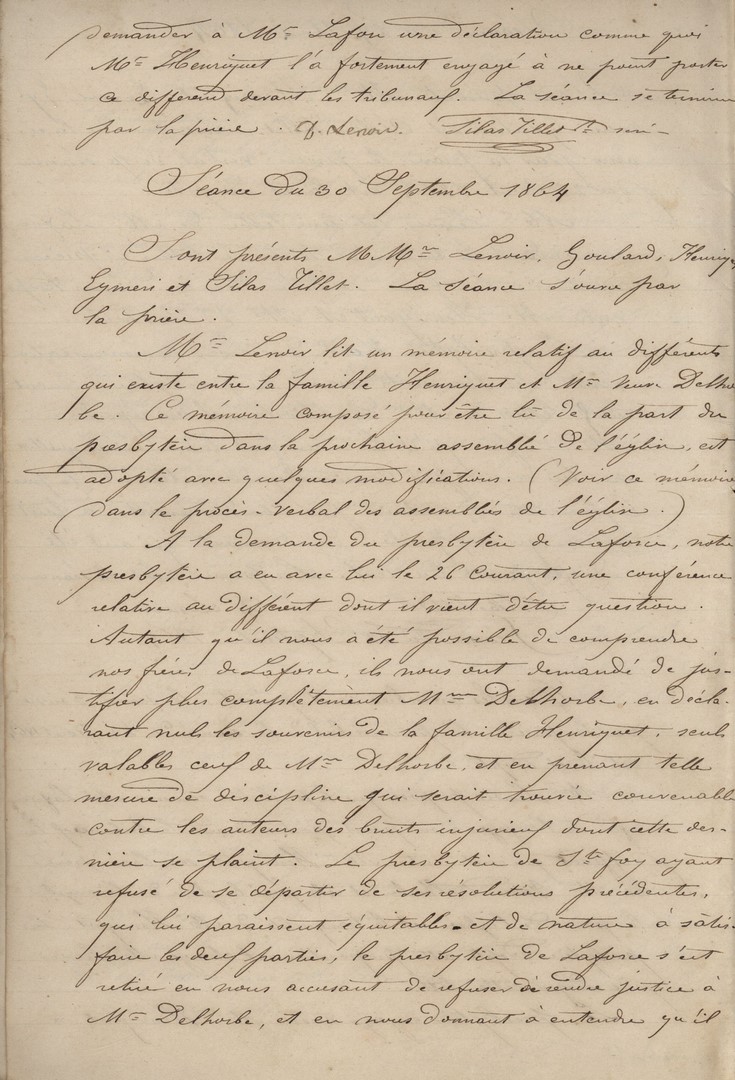 demander à Mr Lafon une déclaration comme quoi
Mr Henriquet l'a fortement engagé à ne point porter
ce différend devant les tribunaux. La séance se termine
par la prière. J. Lenoir. Silas Tillet
Séance du 30 Septembre 1864
Sont présents MMrs Lenoir, Goulard, Henriq
Eymeri et Silas Tillet. La Séance s'ouvre par
la prière.
Mr Lenoir lit un mémoire relatif au différents
qui existe entre la famille Henriquet et Me Veuve Delhor
be. Ce mémoire composé pour être lû de la part du
presbytère dans la prochaine assemblé de l'église, est
adopté avec quelques modifications. (Voir ce mémoire
dans le procès-verbal des assemblés de l'église.)
A la demande du presbytère de Laforce, notre
presbytère a eu avec lui le 26 courant, une conférence
relative au différent dont il vient d'être question.
Autant qu'il nous a été possible de comprendre
nos frères de Laforce, ils nous ont demandé de jus-
tifier plus complètement Mme Delhorbe, en décla-
rant nuls les souvenirs de la famille Henriquet, seuls
valables ceux de Me Delhorbe, et en prenant telle
mesure de discipline qui serait trouvée convenable
contre les auteurs des bruits injurieux dont cette der-
nière se plaint. Le presbytère de Ste foy ayant
refusé de se départir de ses résolutions précédentes,
qui lui paraissent équitables et de nature à satis-
faire les deux parties, le presbytère de Laforce s'est
retiré en nous accusant de refuser de rendre justice à
Me Delhorbe, et en nous donnant à entendre qu'il